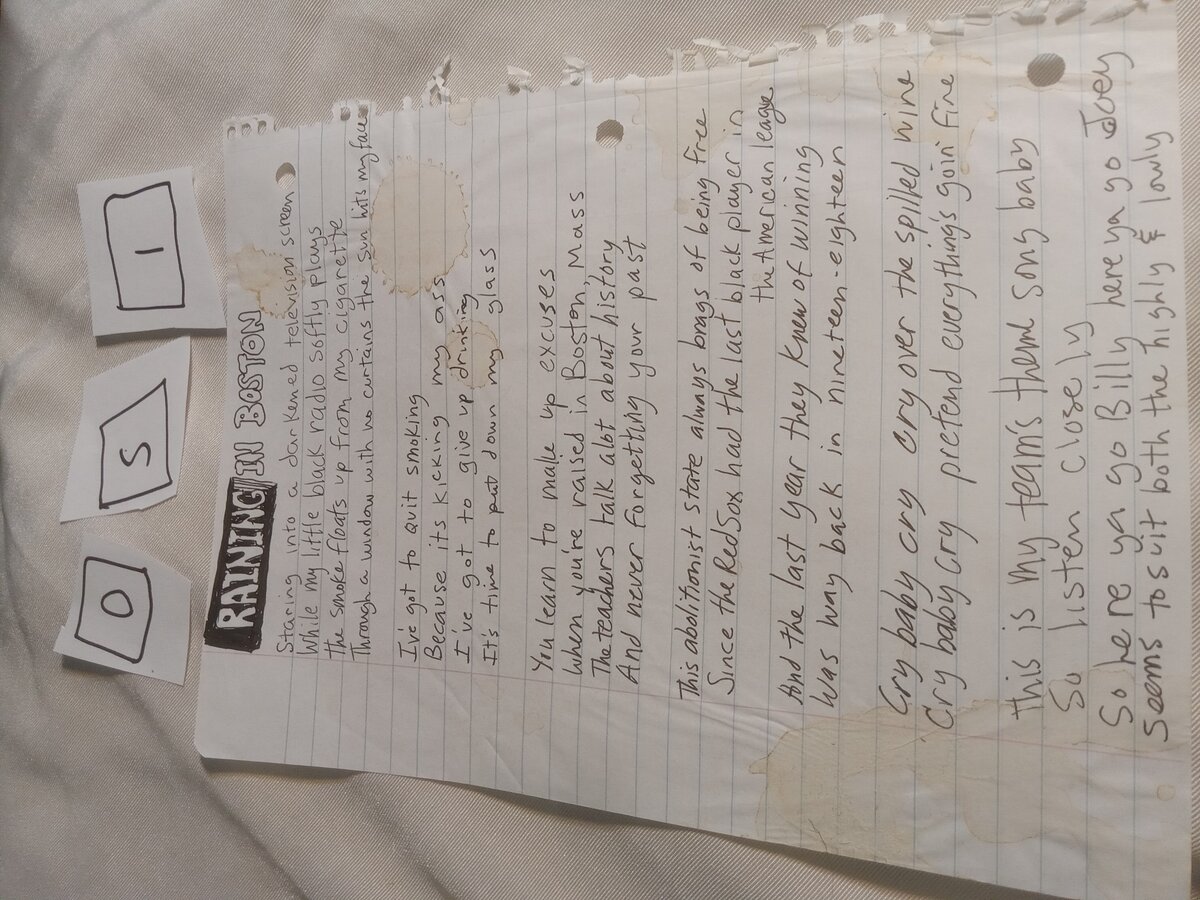 O S I
RAINING IN BOSTON
Staring into a darkened television screen
While my little black radio softly plays
The smoke floats up from my cigarette
Through a window with no curtains the sun hits my face
I've got to quit smoking
Because its kicking my ass
I've got to give up drinking
It's time to put down my glass
You learn to make up excuses
When you're raised in Boston, Mass
The teachers talk abt about history
And never forgetting your past
This abolitionist state always brags of being free
Since the Red Sox had the last black player in
the American league
And the last year they knew of winning
Was way back in nineteen-eighteen
Cry baby cry cry over the spilled wine
Cry baby cry pretend everything's goin' fine
This is my team's them song baby
So listen closely
So here ya go Billy here ya go Joey
Seems to suit both the highly & lowly